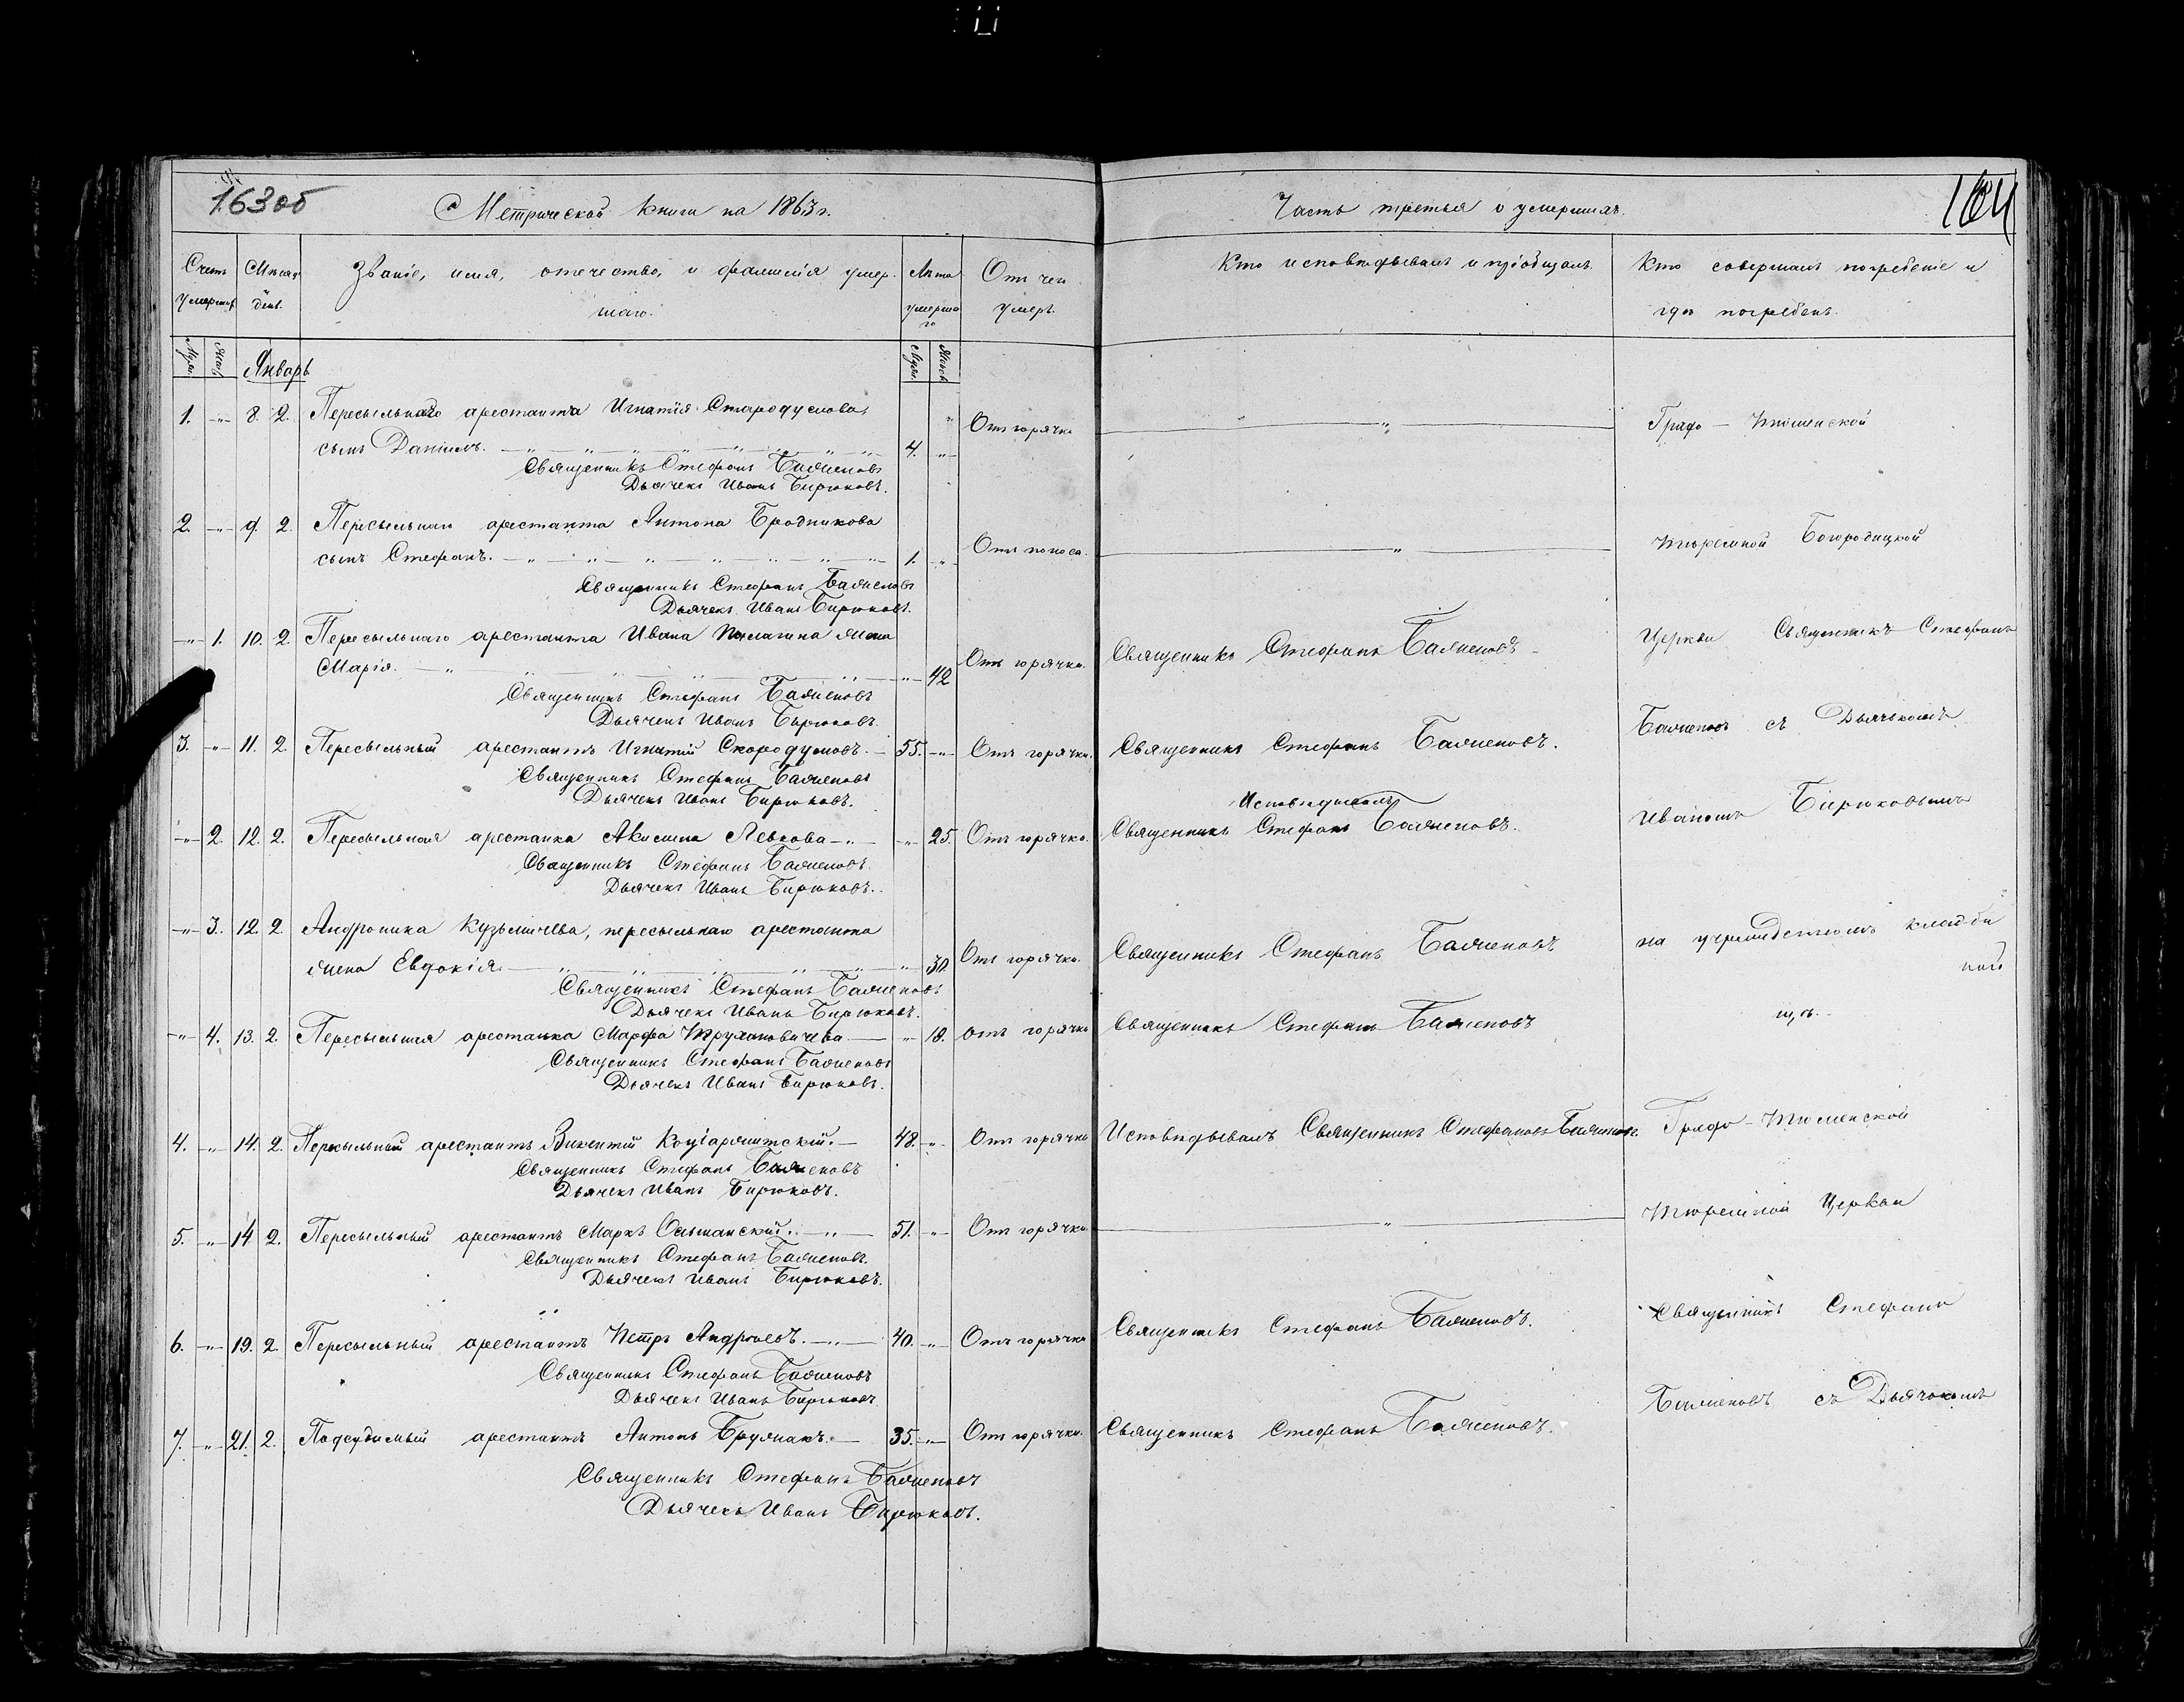 163об
Метрической книги на 1863 г.
Счетъ умершихъ
Мѣсяцъ и день.
Званіе, имя, отечество, и фамилія умер-
шаго.
Лѣта умершаго
Отъ чего умеръ.
Муж. Жен.
Январь
Муж. Женс.
1. -"- 8. 2. Пересыльнаго арестанта Игнатія
сынъ Даніилъ. 4. -"- Отъ горячки
Священникъ Стефанъ Баженовъ
Дьячекъ Иванъ Бирюковъ.
2. -"- 9. 2. Пересыльнаго арестанта Антона Бродникова
сынъ Стефанъ. 1. -"- Отъ поноса.
Священникъ Стефанъ Баженовъ
Дьячекъ Иванъ Бирюковъ.
-"- 1. 10. 2. Пересыльнаго арестанта Ивана жена
Марія. -"- 42 Отъ горячки.
Священникъ Стефанъ Баженовъ
Дьячекъ Иванъ Бирюковъ.
3. -"- 11. 2. Пересыльный арестантъ Игнатій Скородумовъ. 55. -"- Отъ горячки.
Священникъ Стефанъ Баженовъ
Дьячекъ Иванъ Бирюковъ.
-"- 2. 12. 2. Пересыльная арестанка Акилина Левкова -"- 25. Отъ горячки.
Священникъ Стефанъ Баженовъ.
Дьячекъ Иванъ Бирюковъ.
-"- 3. 12. 2. Андроника Кузьмичева, пересыльнаго арестанта
жена Евдокія. -"- 30 Отъ горячки.
Священникъ Стефанъ Баженовъ
Дьячекъ Иванъ Бирюковъ.
-"- 4. 13. 2. Пересыльная арестанка Марфа -"- 18. отъ горячки
Священникъ Стефанъ Баженовъ
Дьячекъ Иванъ Бирюковъ.
4. -"- 14. 2. Пересыльный арестантъ Викентій 48. -"- Отъ горячки
Священникъ Стефанъ Баженовъ
Дьячекъ Иванъ Бирюковъ.
5. -"- 14 2. Пересыльный арестантъ Маркъ 51. -"- Отъ горячки
Священникъ Стефанъ Баженовъ.
Дьячекъ Иванъ Бирюковъ.
6. -"- 19. 2. Пересыльный арестантъ Петръ Андреевъ. 40. -"- Отъ горячки
Священникъ Стефанъ Баженовъ
Дьячекъ Иванъ Бирюковъ
7. -"- 21. 2. Подсудимый арестантъ Антонъ 35. -"- Отъ горячки.
Священникъ Стефанъ Баженовъ
Дьячекъ Иванъ Бирюковъ.
Часть третья о умершихъ.
164
Кто исповѣдывалъ и пріобщалъ.
Кто совершалъ погребеніе и
гдѣ погребенъ.
Священникъ Стефанъ Баженовъ
Священникъ Стефанъ Баженовъ.
Исповѣдывалъ
Священникъ Стефанъ Баженовъ.
Священникъ Стефанъ Баженовъ
Священникъ Стефанъ Баженовъ
Исповѣдывалъ Священникъ Стефанъ Баженовъ.
Священникъ Стефанъ Баженовъ.
Священникъ Стефанъ Баженовъ.
Градо-Тюменской
тюремной Богородицкой
Церкви Священникъ Стефанъ
Баженовъ съ Дьячькомъ
Иваномъ Бирюковымъ
на учрежденномъ кладби
щѣ.
Градо-Тюменской
Тюремной Церкви
Священникъ Стефанъ
Баженовъ съ Дьячькомъ